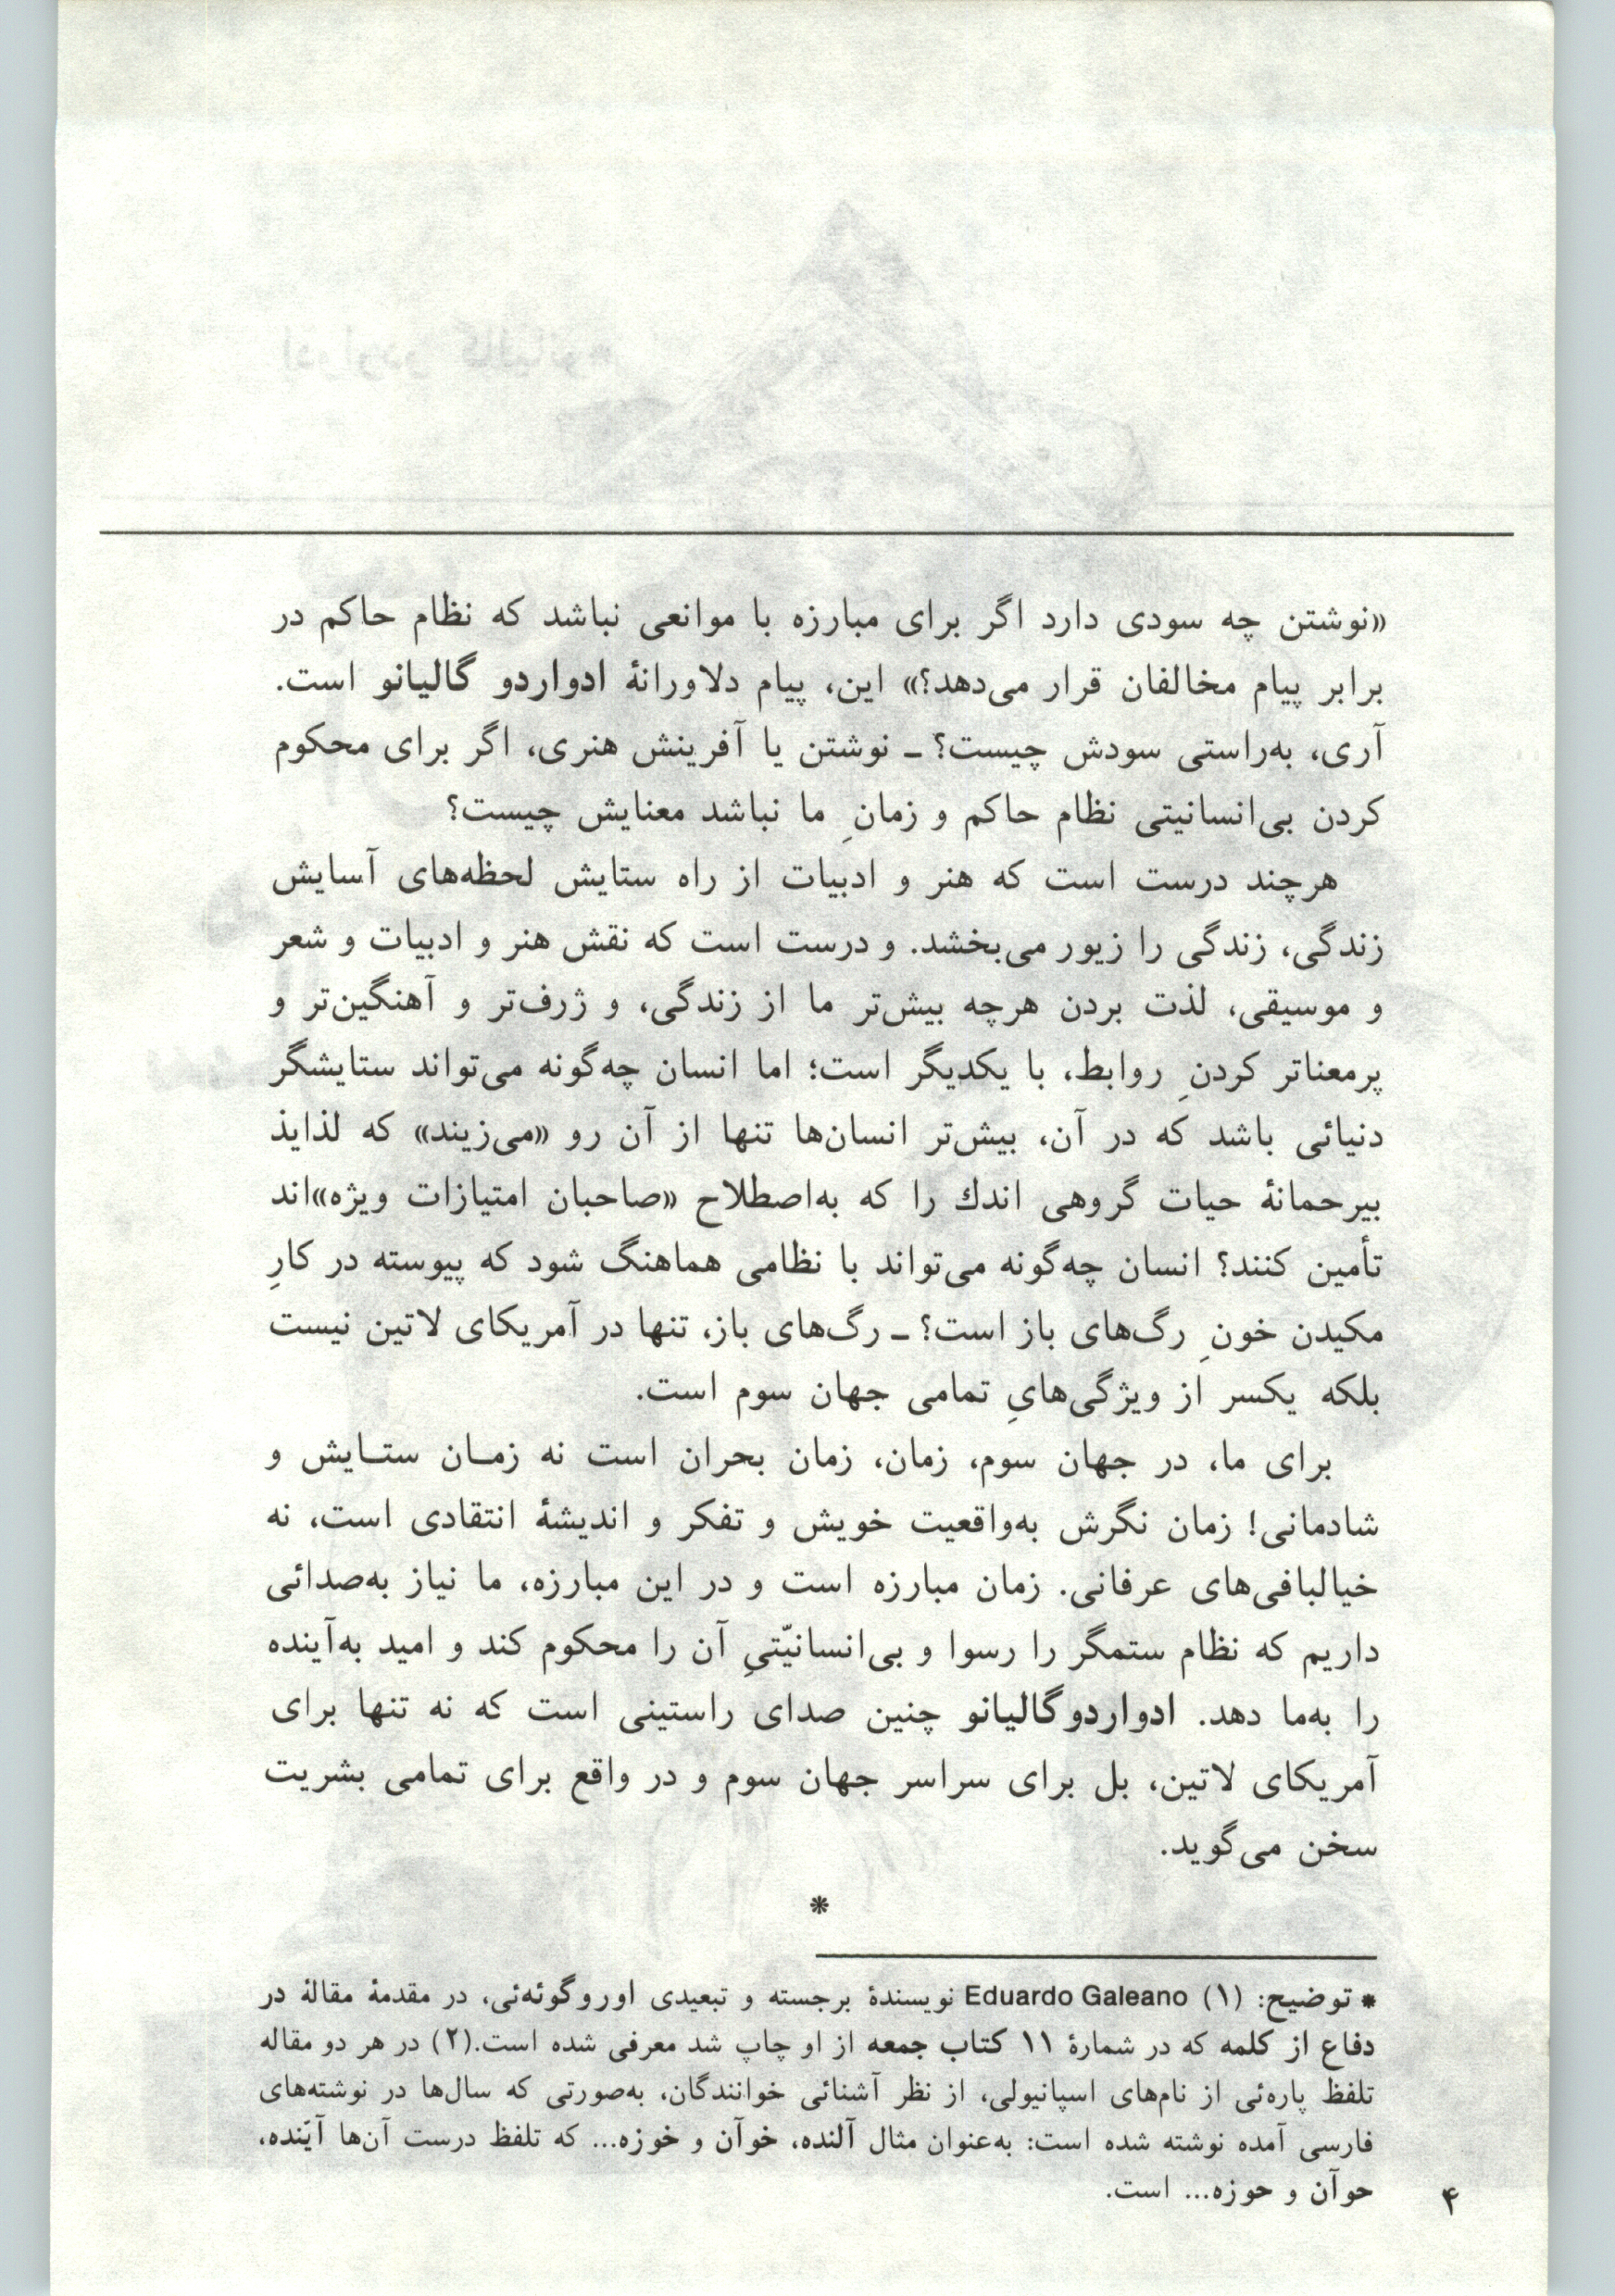 «نوشتن چه سودی دارد اگر برای مبارزه با موانعی نباشد که نظام حاکم در
برابر پیام مخالفان قرار می‌دهد؟» این، پیام دلاورانهٔ ادواردو گالیانو است.
آری، به‌راستی سودش چیست؟ ـ نوشتن یا آفرینش هنری، اگر برای محکوم
کردن بی‌انسانیتی نظام حاکم و زمانِ ما نباشد معنایش چیست؟
هرچند درست است که هنر و ادبیات از راه ستایش لحظه‌های آسایش
زندگی، زندگی را زیور می‌بخشد. و درست است که نقش هنر و ادبیات و شعر
و موسیقی، لذت بردن هرچه بیش‌تر ما از زندگی، و ژرف‌تر و آهنگین‌تر و
پرمعناتر کردنِ روابط، با یکدیگر است؛ اما انسان چه‌گونه می‌تواند ستایشگر
دنیائی باشد که در آن، بیش‌تر انسان‌ها تنها از آن رو «می‌زیند» که لذایذ
بیرحمانهٔ حیات گروهی اندك را که به‌اصطلاح «صاحبان امتیازات ویژه»اند
تأمین کنند؟ انسان چه‌گونه می‌تواند با نظامی هماهنگ شود که پیوسته در کارِ
مکیدن خونِ رگ‌های باز است؟ ـ رگ‌های باز، تنها در آمریکای لاتین نیست
بلکه یکسر از ویژگی‌هایِ تمامی جهان سوم است.
برای ما، در جهان سوم، زمان، زمان بحران است نه زمـان ستـایش و
شادمانی! زمان نگرش به‌واقعیت خویش و تفکر و اندیشهٔ انتقادی است، نه
خیالبافی‌های عرفانی. زمان مبارزه است و در این مبارزه، ما نیاز به‌صدائی
داریم که نظام ستمگر را رسوا و بی‌انسانیّتیِ آن را محکوم کند و امید به‌آینده
را به‌ما دهد. ادواردوگالیانو چنین صدای راستینی است که نه تنها برای
آمریکای لاتین، بل برای سراسر جهان سوم و در واقع برای تمامی بشریت
سخن می‌گوید.
*
* توضیح: (۱) Eduardo Galeano نویسندهٔ برجسته و تبعیدی اوروگوئه‌ئی، در مقدمهٔ مقالهٔ در
دفاع از کلمه که در شمارهٔ ۱۱ کتاب جمعه از او چاپ شد معرفی شده است.(۲) در هر دو مقاله
تلفظ پاره‌ئی از نام‌های اسپانیولی، از نظر آشنائی خوانندگان، به‌صورتی که سال‌ها در نوشته‌های
فارسی آمده نوشته شده است: به‌عنوان مثال آلنده، خوآن و خوزه... که تلفظ درست آن‌ها آیّنده،
حوآن و حوزه... است.
۴